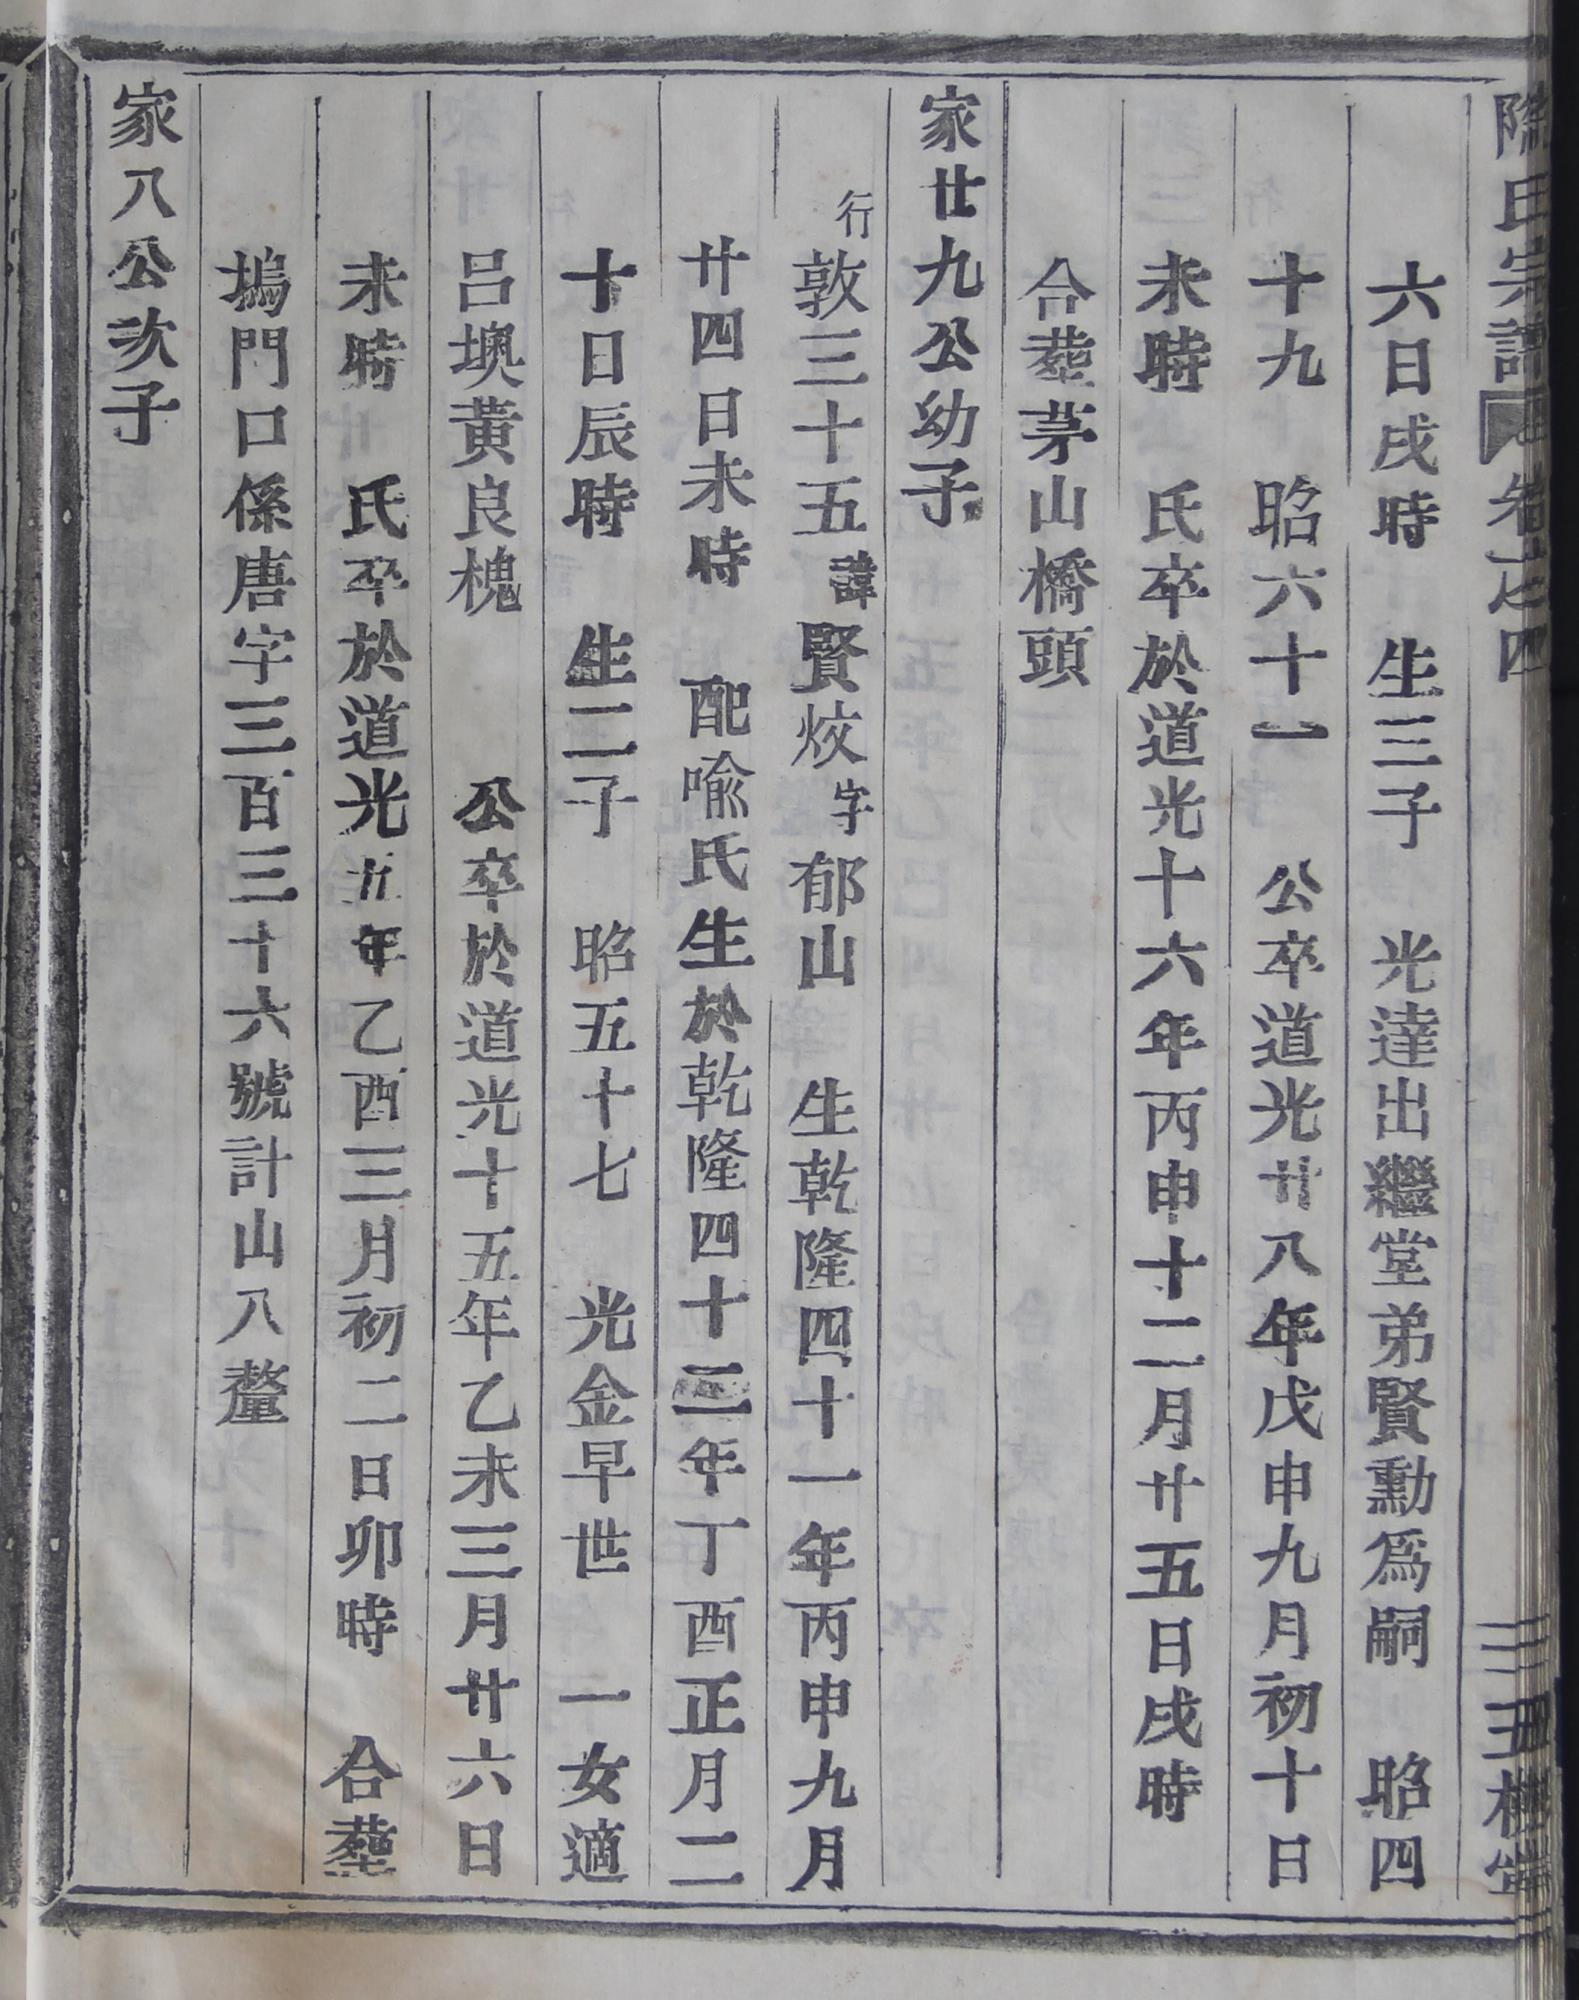 陳氏宗譜 卷之四
六日戌時 生三子 光達出繼堂弟賢勳為嗣 昭四
十九 昭六十一 公卒道光廿八年戊申九月初十日
未時 氏卒於道光十六年丙申十二月廿五日戌時
合塟茅山橋頭
家廿九公幼子
行敦三十五諱賢烄字郁山 生乾隆四十一年丙申九月
廿四日未時 配喩氏生於乾隆四十二年丁酉正月二
十日辰時 生二子 昭五十七 光金早世 一女適
呂墺黃良槐 公卒於道光十五年乙未三月廿六日
未時 氏卒於道光五年乙酉三月初二日卯時 合塟
塢門口係唐字三百三十六號計山八釐
家八公次子